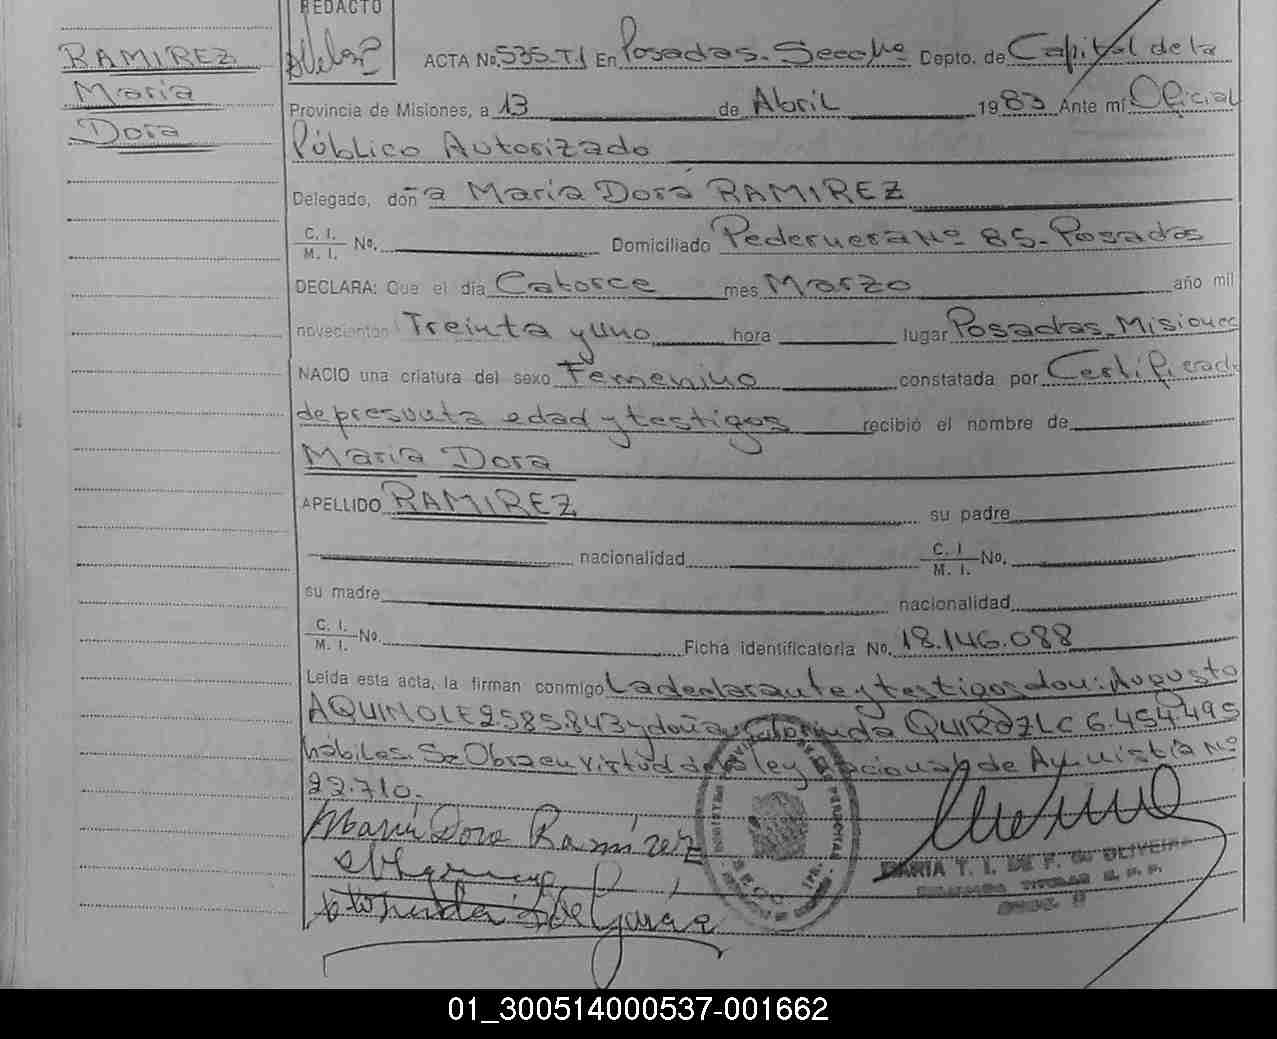 REDACTO
RAMIREZ
María
Dora
ACTA No. 535-T.I En Posadas. Secc. 1º Depto. de Capital de la
Provincia de Misiones, a 13 de Abril 1983 Ante mí Oficial
Público Autorizado
Delegado, doña María Dora RAMIREZ
C. I. / M. I. No. Domiciliado Pedernera Nº 85- Posadas
DECLARA: Que el día Catorce mes Marzo año mil
novecientos Treinta y uno hora lugar Posadas, Misiones
NACIO una criatura del sexo Femenino constatada por Certificado
de presunta edad y testigos recibió el nombre de
María Dora
APELLIDO RAMIREZ su padre
nacionalidad C. I. / M. I. No.
su madre nacionalidad
C. I. / M. I. No. Ficha identificatoria No. 18.146.088
Leída esta acta, la firman conmigo La declarante y testigos don: Augusto
AQUINO LE 2.585.843 y doña QUIROZ LC 6.454.495
hábiles. Se Obra en virtud de la ley Nacional de Amnistía Nº
22.710.-
María Dora Ramírez
MARIA T. I. DE F. de OLIVEIRA
01_300514000537-001662